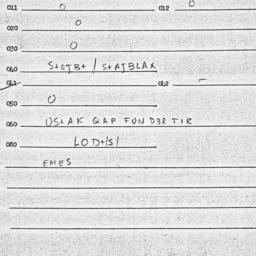 011 0 012 0
020 0
030 0
040 S+OJB+ / S+AJBLAX
041 042 –
050 0
060 US+AK GAP FUND3R TIR
080 LOD+/S/
EMES